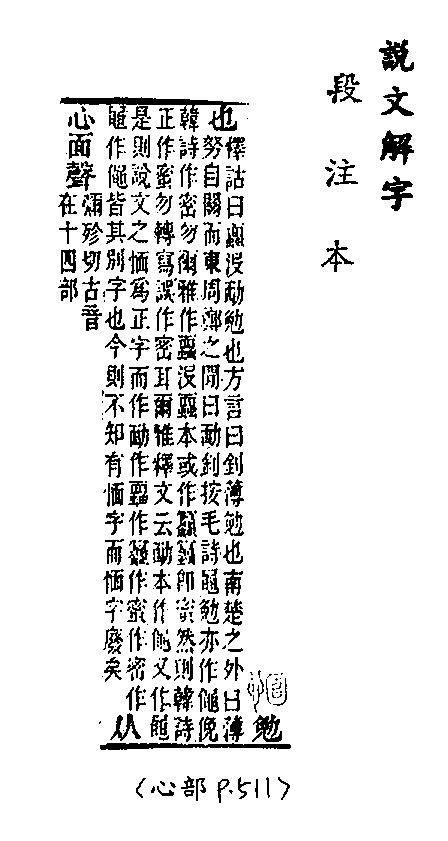 說文解字
段注本
勉
也
釋詁曰蠠没勔勉也方言曰釗薄勉也南楚之外曰薄
努自關而東周鄭之閒曰勔釗按毛詩黽勉亦作僶俛
韓詩作密勿爾雅作蠠没蠠本或作𧖅𧖅卽蜜然則韓詩
正作蜜勿轉寫誤作密耳爾雅釋文云勔本作僶又作黽
是則說文之愐爲正字而作勔作蠠作𧖅作蜜作密作
黽作僶皆其別字也今則不知有愐字而愐字廢矣
从
心面聲
彌殄切古音
在十四部
〈心部 P.511〉